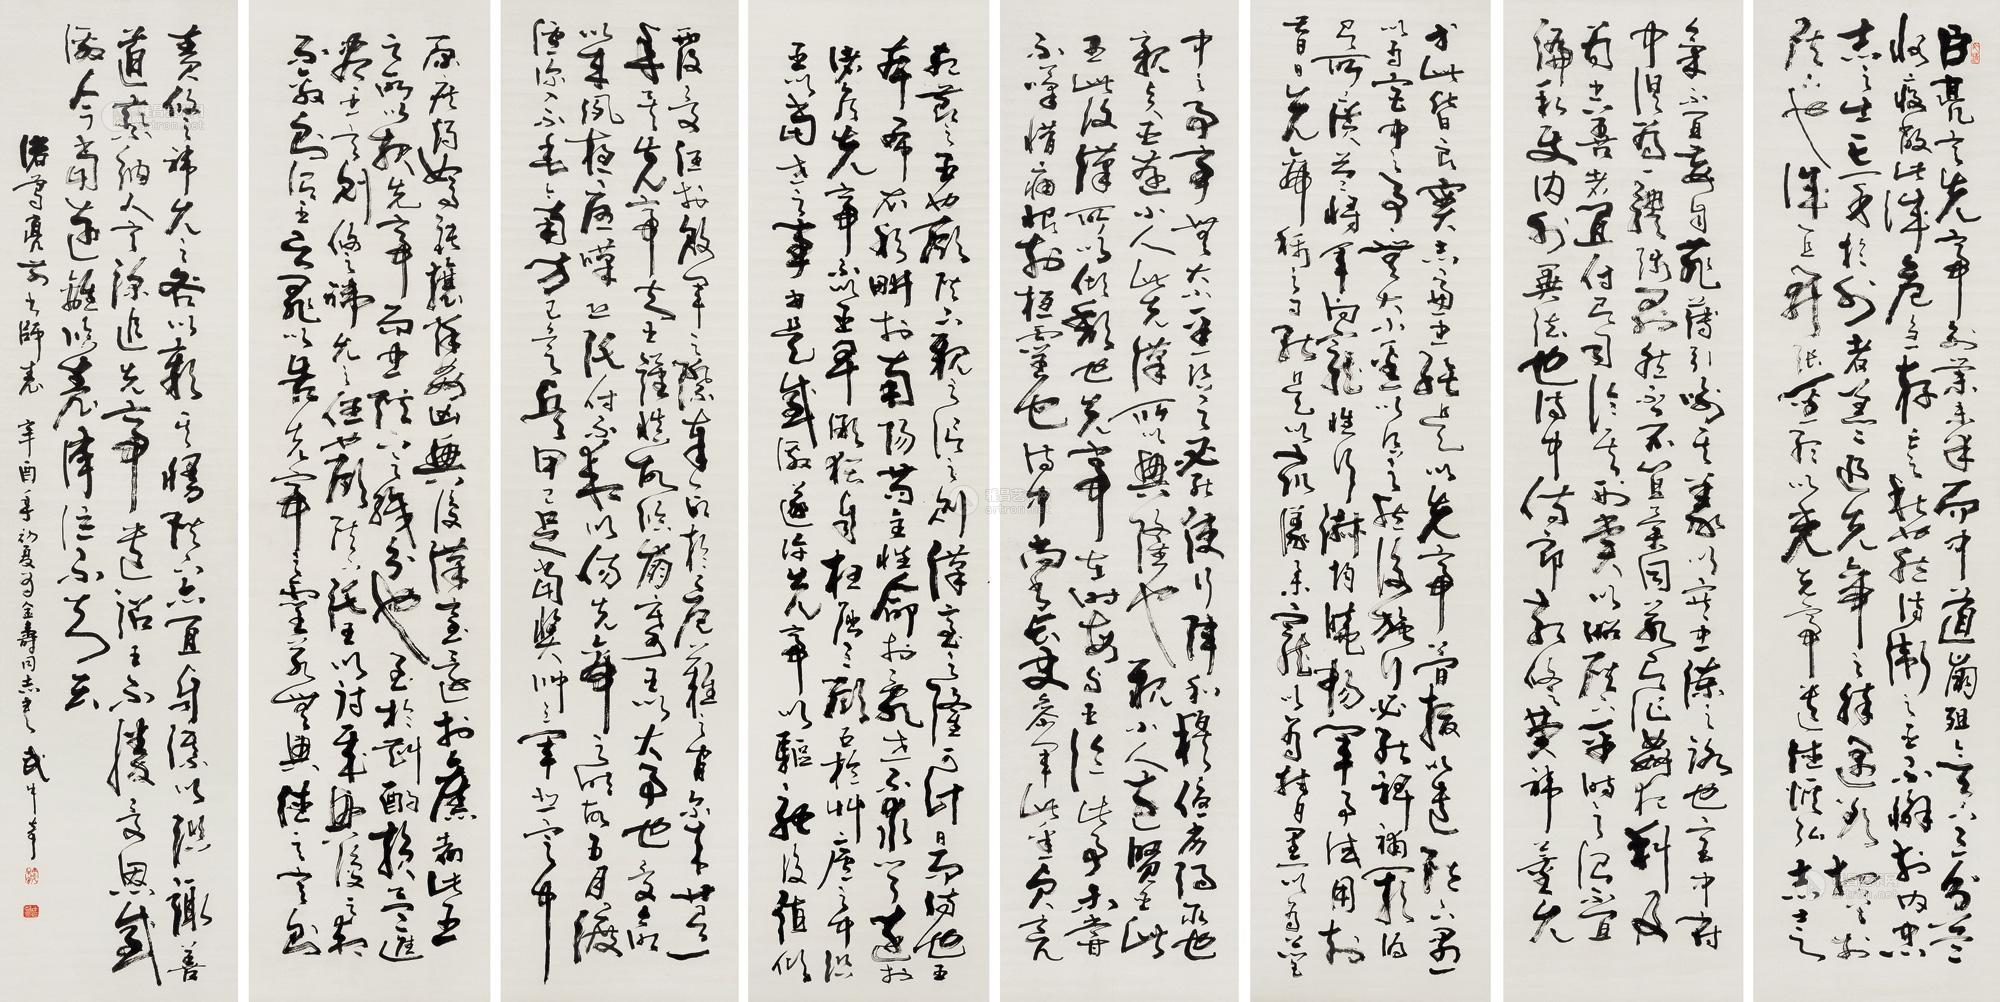 臣亮言先帝創業未半而中道崩殂今天下三分益
州疲敝此誠危急存亡之秋也然侍衛之臣不懈於内忠
志之士亡身於外者蓋追先帝之殊遇欲報之於
陛下也誠宜開張聖聽以光先帝遺德恢弘志士之
氣不宜妄自菲薄引喻失義以塞忠諫之路也宮中府
中俱為一體陟罰臧否不宜異同若有作姦犯科及
為忠善者宜付有司論其刑賞以昭陛下平明之治不宜
偏私使内外異法也侍中侍郎郭攸之費禕董允
等此皆良實志慮忠純是以先帝簡拔以遺陛下愚
以為宮中之事事無大小悉以咨之然後施行必能裨補闕漏
有所廣益將軍向寵性行淑均曉暢軍事試用於
昔日先帝稱之曰能是以衆議舉寵以為督愚以為營
中之事事無大小悉以咨之必能使行陣和穆優劣得所也
親賢臣遠小人此先漢所以興隆也親小人遠賢臣此
後漢所以傾頹也先帝在時每與臣論此事未嘗
不嘆惜痛恨於桓靈也侍中尚書長史參軍此悉貞亮
死節之臣也願陛下親之信之則漢室之隆可計日而待也臣
本布衣躬耕於南陽苟全性命於亂世不求聞達於
諸侯先帝不以臣卑鄙猥自枉屈三顧臣於草廬之中諮
臣以當世之事由是感激遂許先帝以驅馳後值傾
覆受任於敗軍之際奉命於危難之間爾來廿有一
年矣先帝知臣謹慎故臨崩寄臣以大事也受命
以來夙夜憂嘆恐託付不效以傷先帝之明故五月渡
瀘深入不毛今南方已定兵甲已足當獎帥三軍北定中
原庶竭駑鈍攘除姦凶興復漢室還於舊都此臣
之所以報先帝而忠陛下之職分也至於斟酌損益進
盡忠言則攸之禕允之任也願陛下託臣以討賊興復之效
不效則治臣之罪以告先帝之靈若無興德之言則
責攸之禕允之咎以彰其慢陛下亦宜自謀以諮諏善
道察納雅言深追先帝遺詔臣不勝受恩感
激今當遠離臨表涕泣不知所云
諸葛亮前出師表 辛酉年初夏為金壽同志書 武中奇